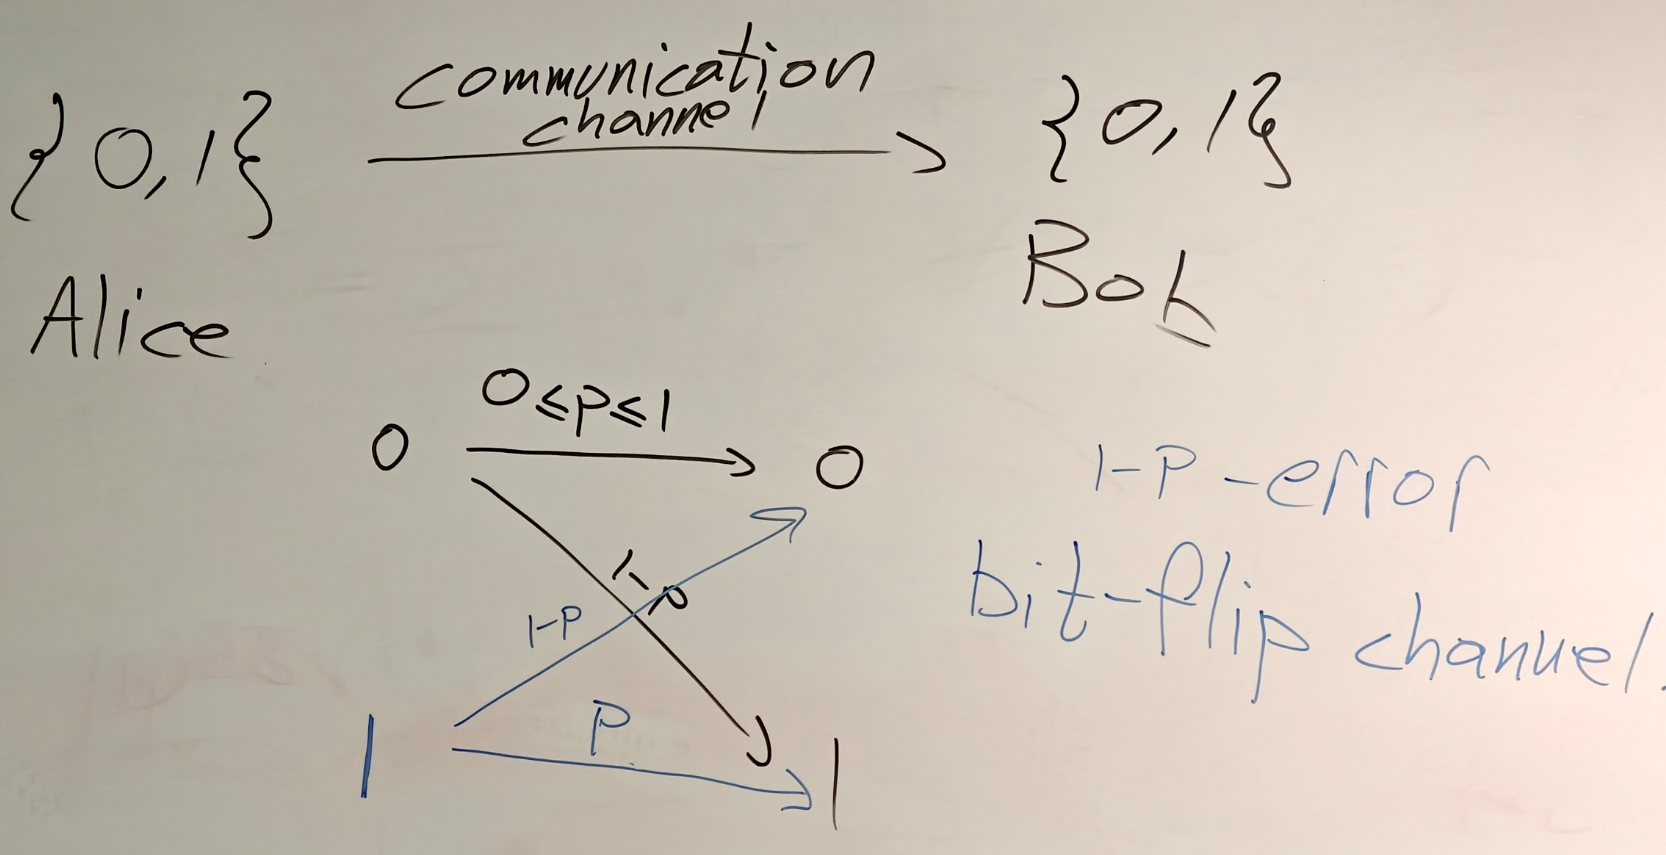 communication
channel
{0,1} {0,1}
Alice Bob
0≤p≤1
0 0
1-p
1-p
p
1 1
1-p -error
bit-flip channel.